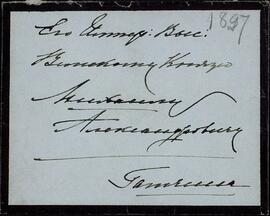 1897
Его Импер: Выс:
Великому Князю
Михаилу
Александровичу
Гатчина